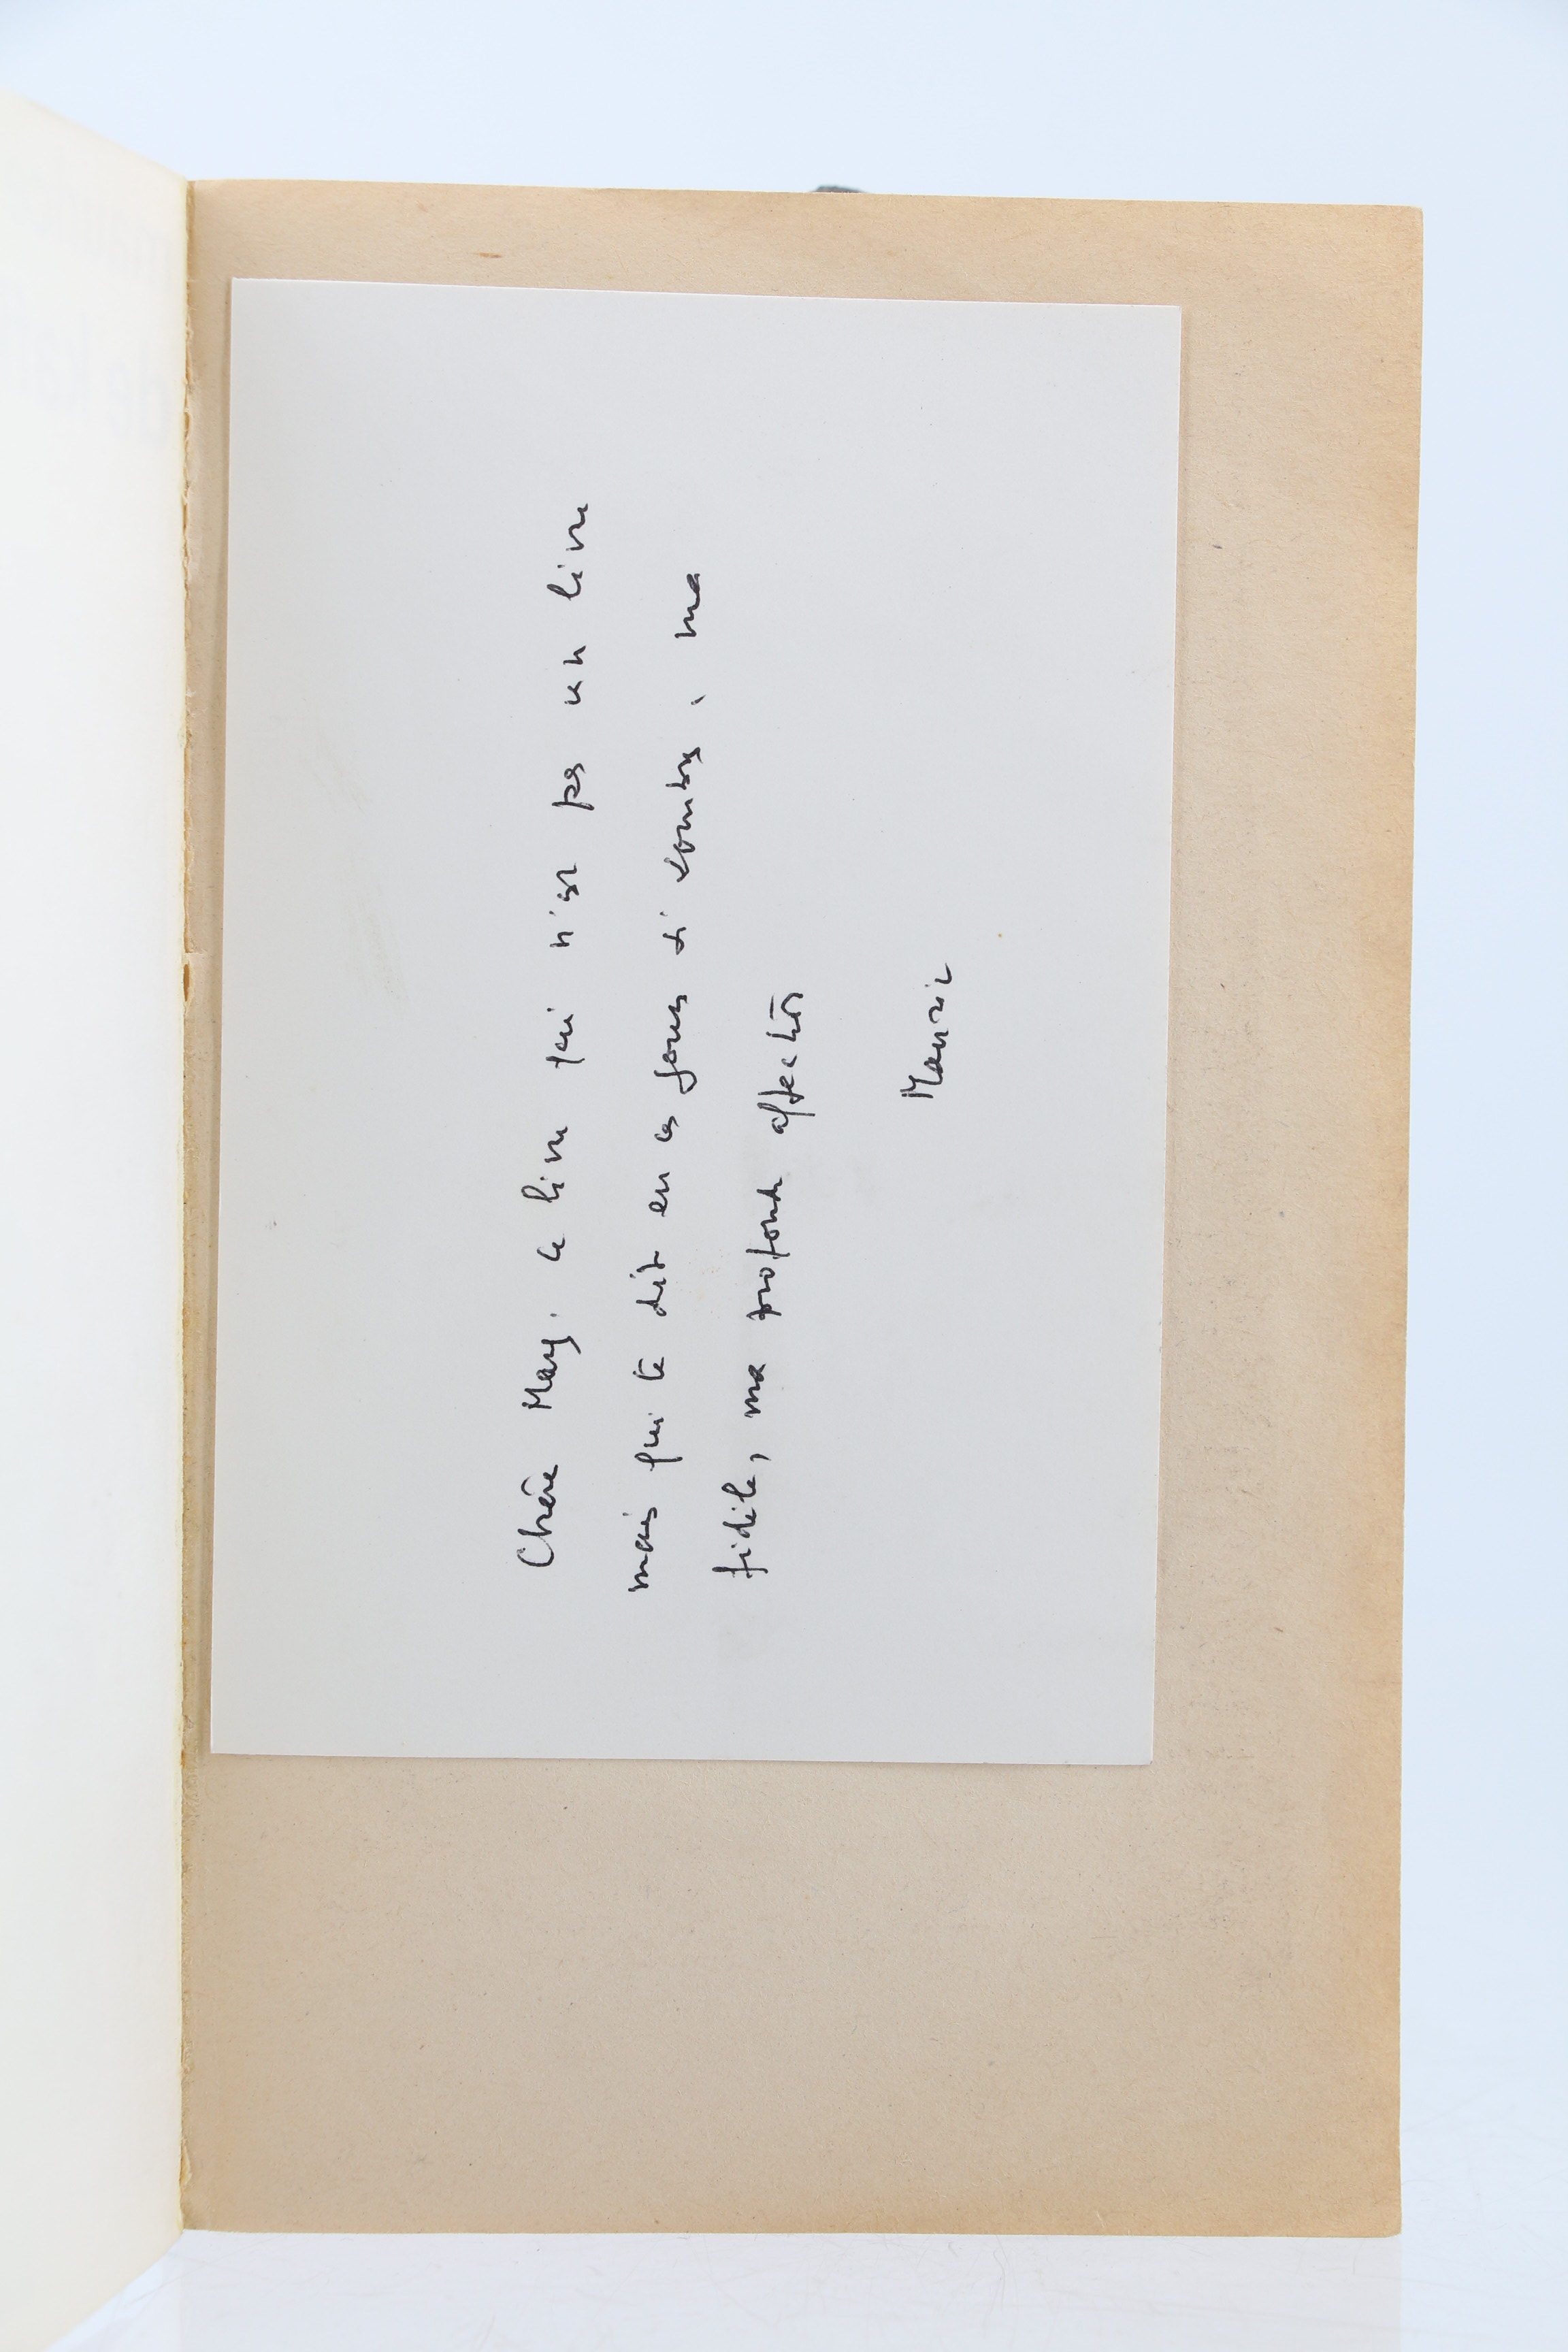 Chère Mary. Ce livre qui n'est pas un livre
mais qui te dit en ces jours si sombres, ma
fidèle, ma profonde affection
Maurice